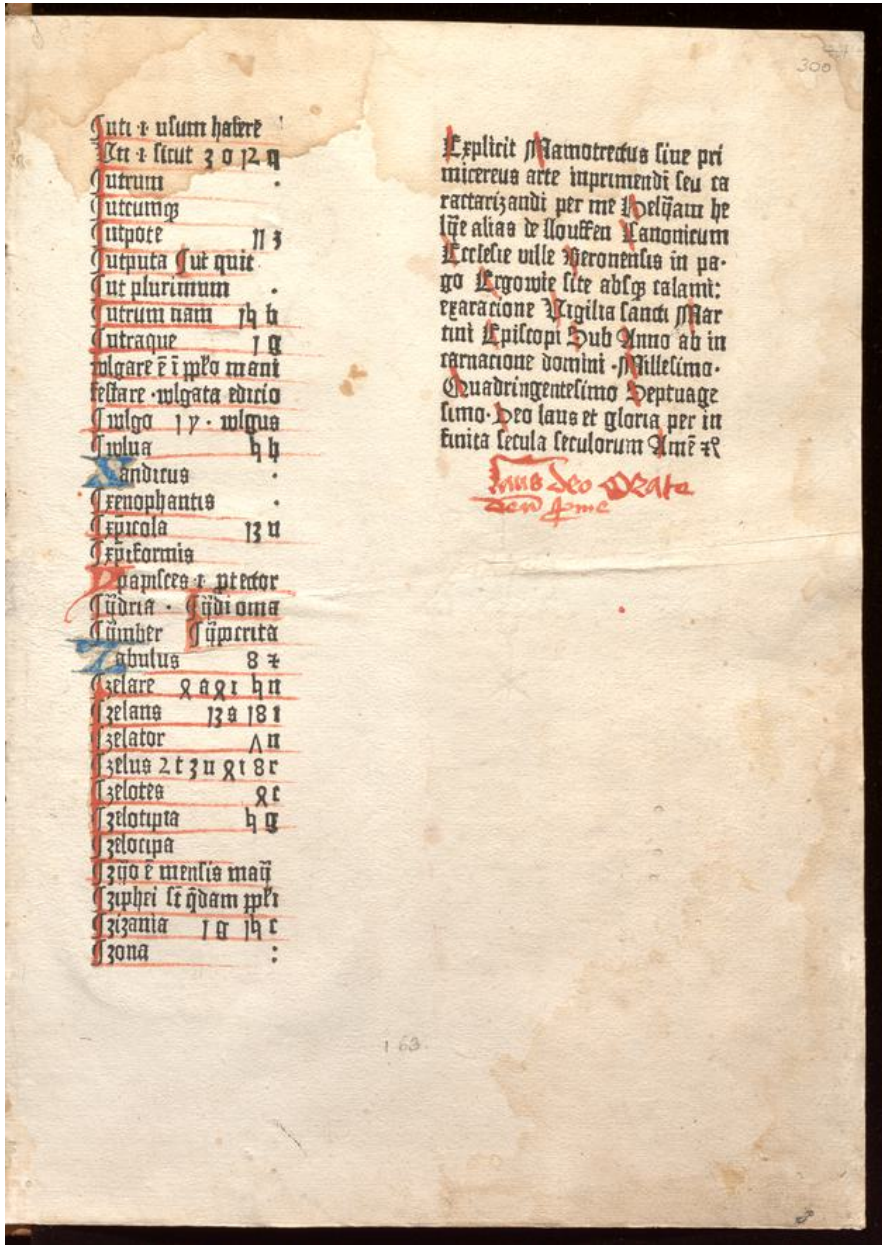 300
uti ·i· usum habere
Uti ·i· sicut 3 o 12 q
utrum ·
utcumqꝫ
utpote 11 3
utputa ut quit
ut plurimum ·
utrum nam 14 b
utraque 1 g
wlgare ē ī pplo mani
festare · wlgata edicio
wlgo 1 y · wlgus
wlua h h
Xandicus ·
xenophantis ·
xp̄icola 13 u
xp̄iformis
Ypapisces ·i· ptector
ÿdria · ÿdioma
ÿmber ÿpocrita
Zabulus 8 z
zelare
zelans 13 s 18 i
zelator Λ n
zelus 2 t 3 n 9 i 8 r
zelotes 9 c
zelotipia h g
zelocipa
zÿo ē mensis maÿ
ziphei st̄ q̄dam ppli
zizania 1 g 14 c
zona :
Explicit Mamotrectus siue pri
micereus arte inprimendi seu ca
ractarizandi per me Helÿam he
lÿe alias de llouffen Canonicum
Ecclesie ville Beronensis in pa·
go Ergowie site absqꝫ calami:
exaracione Vigilia sancti Mar
tini Episcopi Sub Anno ab in
carnacione domini ·Millesimo·
Quadringentesimo Septuage
simo· Deo laus et gloria per in
finita secula seculorum Amē ⁊ꝛ
Laus deo Orate
deū ꝓ me
163